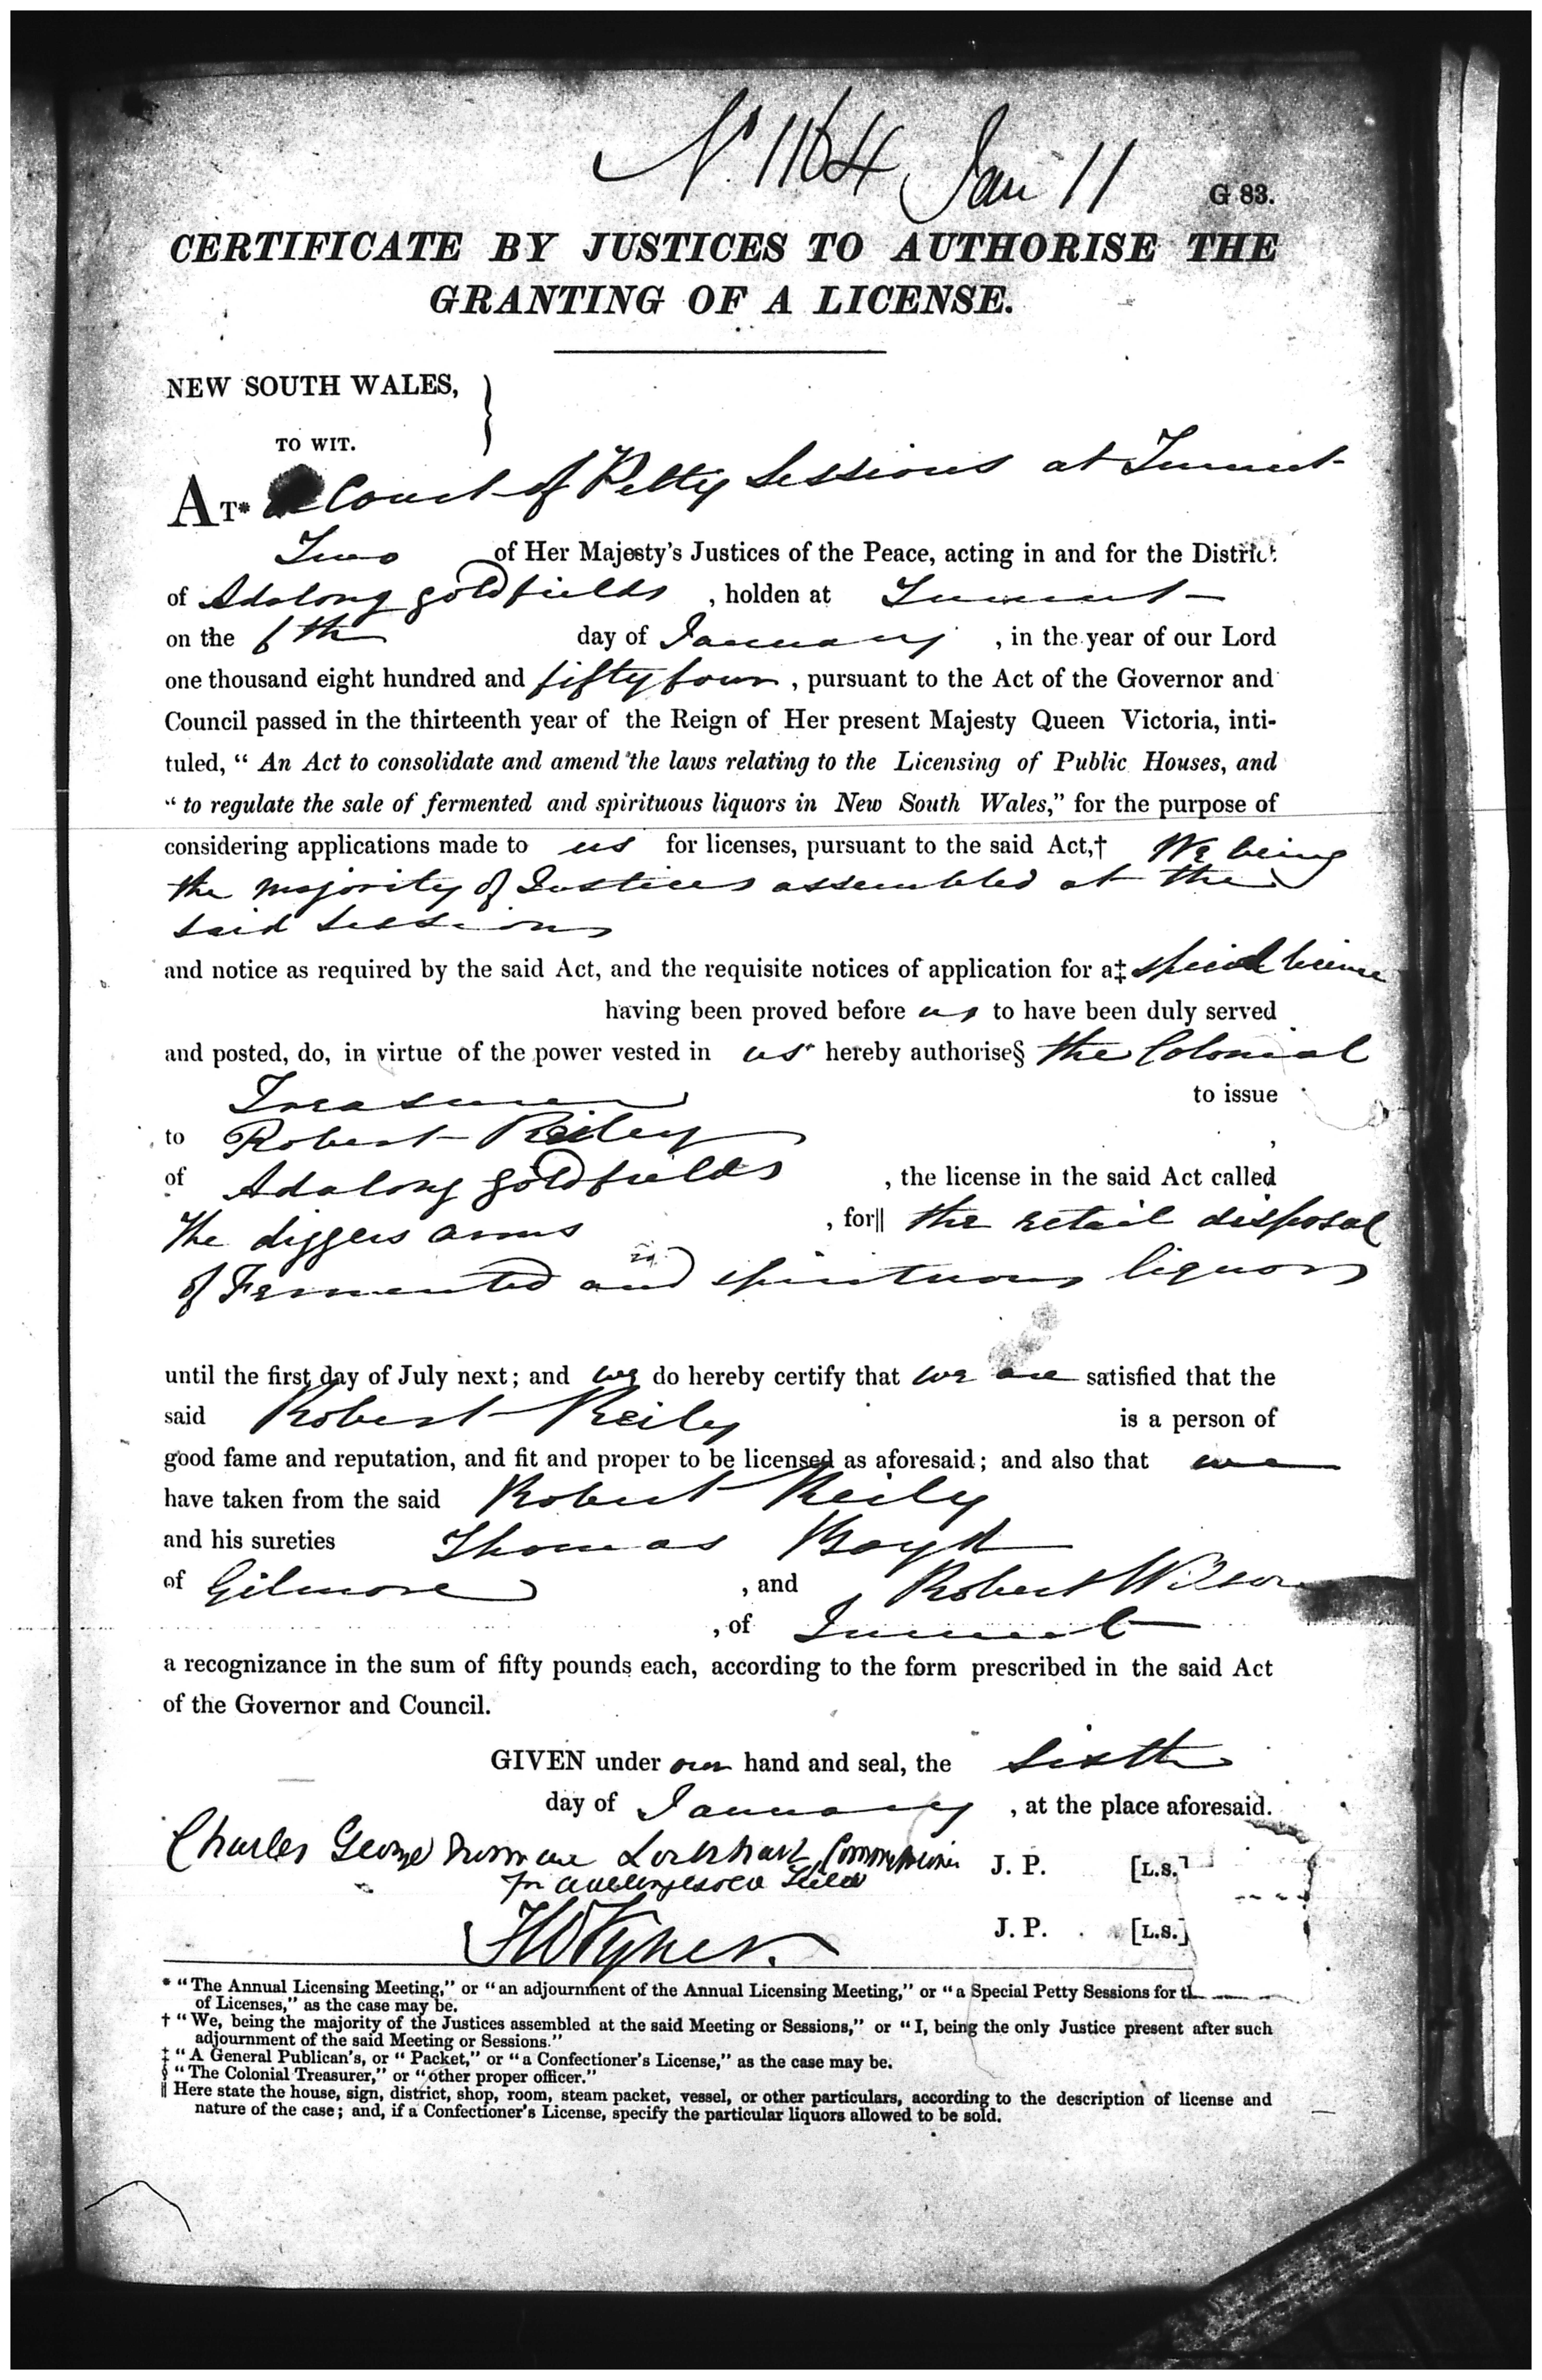 No. 1164 Jan 11
G 83.
CERTIFICATE BY JUSTICES TO AUTHORISE THE
GRANTING OF A LICENSE.
NEW SOUTH WALES,
TO WIT.
AT* a Court of Petty Sessions at Tumut
Two of Her Majesty's Justices of the Peace, acting in and for the District
of Adalong goldfields, holden at Tumut
on the 6th day of January, in the year of our Lord
one thousand eight hundred and fifty four, pursuant to the Act of the Governor and
Council passed in the thirteenth year of the Reign of Her present Majesty Queen Victoria, inti-
tuled, " An Act to consolidate and amend the laws relating to the Licensing of Public Houses, and
" to regulate the sale of fermented and spirituous liquors in New South Wales," for the purpose of
considering applications made to us for licenses, pursuant to the said Act,† We being
the majority of Justices assembled at the
said sessions
and notice as required by the said Act, and the requisite notices of application for a‡ special license
having been proved before us to have been duly served
and posted, do, in virtue of the power vested in us hereby authorise§ the Colonial
Treasurer to issue
to Robert Reiley,
of Adalong goldfields, the license in the said Act called
The diggers arms, for‖ the retail disposal
of Fermented and spirituous liquors
until the first day of July next; and we do hereby certify that we are satisfied that the
said Robert Reily is a person of
good fame and reputation, and fit and proper to be licensed as aforesaid; and also that we
have taken from the said Robert Reily
and his sureties Thomas Boyd
of Gilmore, and Robert Wilson
, of Tumut
a recognizance in the sum of fifty pounds each, according to the form prescribed in the said Act
of the Governor and Council.
GIVEN under our hand and seal, the Sixth
day of January, at the place aforesaid.
Charles George Norman Lockhart Commissioner J. P. [L.S.]
for
J. P. [L.S.]
* "The Annual Licensing Meeting," or "an adjournment of the Annual Licensing Meeting," or "a Special Petty Sessions for
of Licenses," as the case may be.
† "We, being the majority of the Justices assembled at the said Meeting or Sessions," or "I, being the only Justice present after such
adjournment of the said Meeting or Sessions."
‡ "A General Publican's, or " Packet," or "a Confectioner's License," as the case may be.
§ "The Colonial Treasurer," or "other proper officer."
‖ Here state the house, sign, district, shop, room, steam packet, vessel, or other particulars, according to the description of license and
nature of the case; and, if a Confectioner's License, specify the particular liquors allowed to be sold.